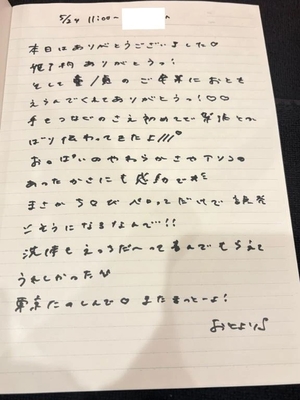 5/24 11:00~
本日はありがとうございました♡
ありがとうっ!
そして童/貞のご卒業におとも
えらんでくれてありがとうっ!♡♡
手をつなぐのさえ初めてで緊張とっ
ばり伝わってきたよ///
おっぱいのやわらかさや
あったかさにも感動で
まさか ペロってだけで
ごそうになるなんで…!!
洗体もえっろだ〜って喜んでもらえて
うれしかった
東京たのしんで♡ またきっとーよ!